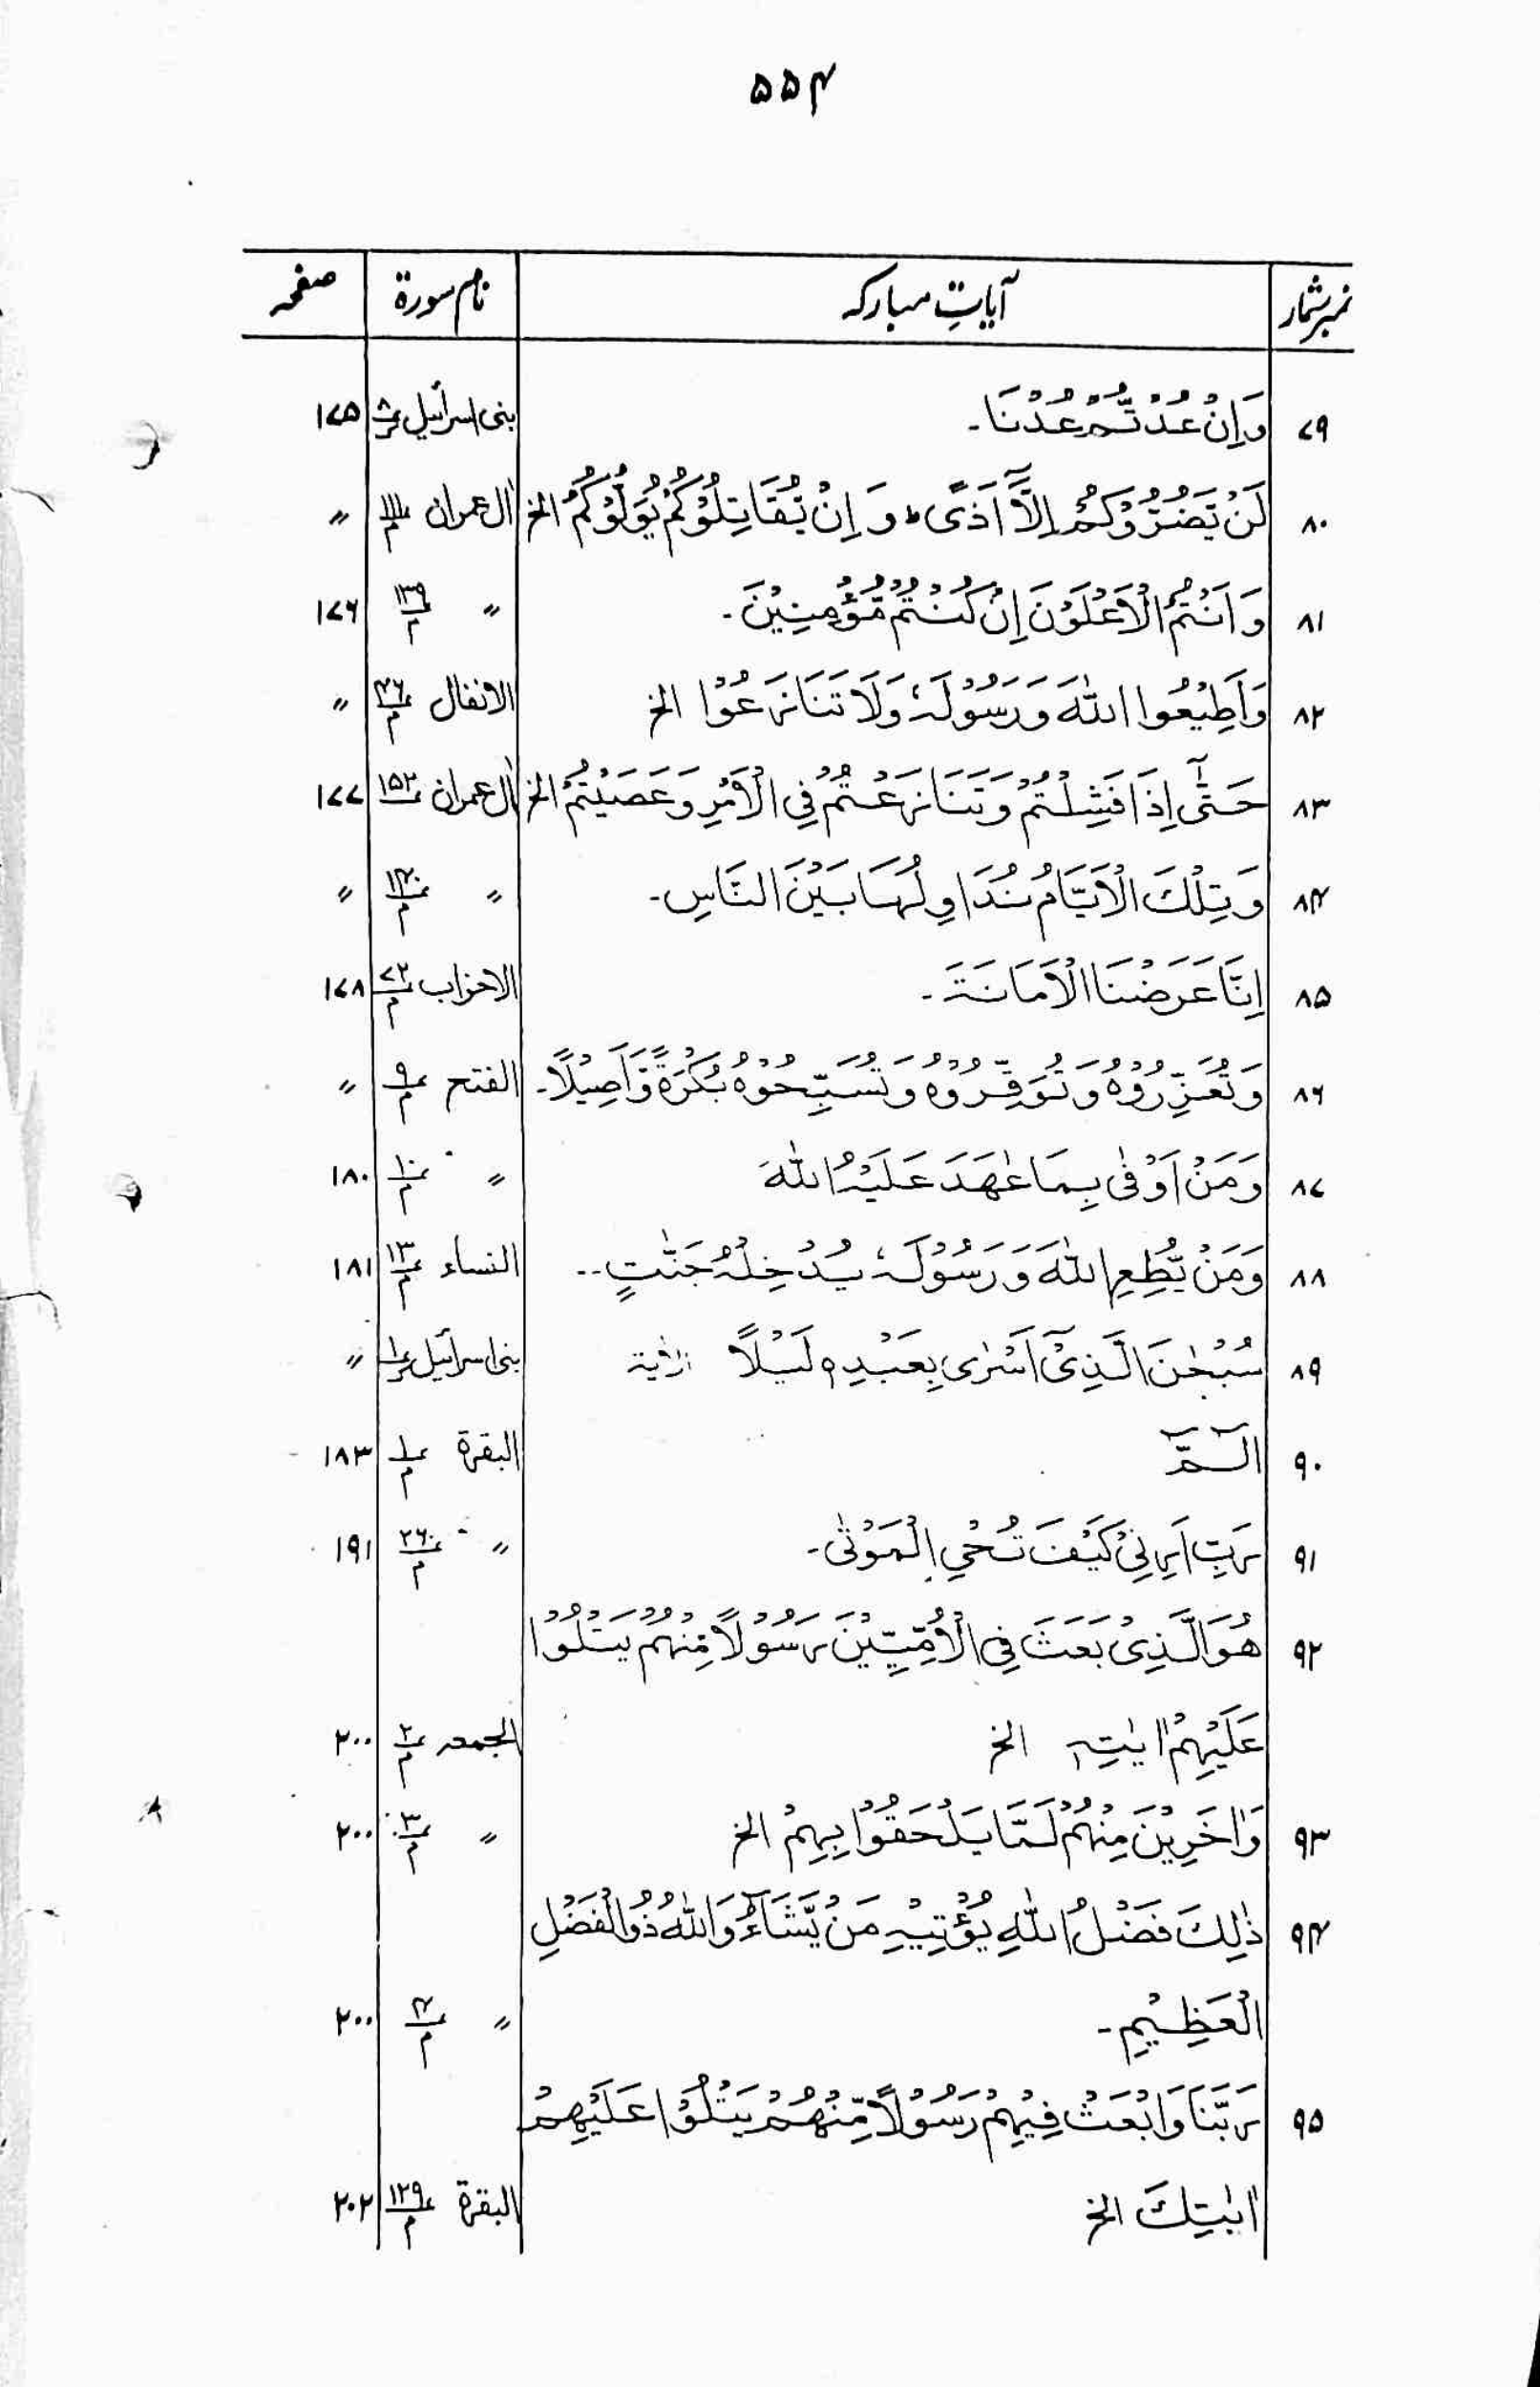 ۵۵۴
نمبرشمار آیاتِ مبارکہ نام سورۃ صفحہ
۷۹ وَاِنْ عُدْتُّمْ عُدْنَا۔ بنی اسرائیل ۸ ۱۷۵
۸۰ لَنْ يَّضُرُّوْكُمْ اِلَّآ اَذًى ؕ وَ اِنْ يُّقَاتِلُوْكُمْ يُوَلُّوْكُمُ الخ اٰل عمران ۱۱۱/م 〃
۸۱ وَاَنْتُمُ الْاَعْلَوْنَ اِنْ كُنْتُمْ مُّؤْمِنِيْنَ۔ 〃 ۱۳۹/م ۱۷۶
۸۲ وَاَطِيْعُوا اللّٰهَ وَرَسُوْلَهٗ وَلَا تَنَازَعُوْا الخ الانفال ۴۶/م 〃
۸۳ حَتّٰٓى اِذَا فَشِلْتُمْ وَتَنَازَعْتُمْ فِي الْاَمْرِ وَعَصَيْتُمْ الخ اٰل عمران ۱۵۲ ۱۷۷
۸۴ وَتِلْكَ الْاَيَّامُ نُدَاوِلُهَا بَيْنَ النَّاسِ۔ 〃 ۱۴۰/م 〃
۸۵ اِنَّا عَرَضْنَا الْاَمَانَةَ۔ الاحزاب ۷۲/م ۱۷۸
۸۶ وَتُعَزِّرُوْهُ وَتُوَقِّرُوْهُ وَتُسَبِّحُوْهُ بُكْرَةً وَّاَصِيْلًا۔ الفتح ۹/م 〃
۸۷ وَمَنْ اَوْفٰى بِمَا عٰهَدَ عَلَيْهُ اللّٰهَ 〃 ۱۰/م ۱۸۰
۸۸ وَمَنْ يُّطِعِ اللّٰهَ وَرَسُوْلَهٗ يُدْخِلْهُ جَنّٰتٍ۔۔ النساء ۱۳/م ۱۸۱
۸۹ سُبْحٰنَ الَّذِيْٓ اَسْرٰى بِعَبْدِهٖ لَيْلًا الاٰیۃ بنی اسرائیل ۱ 〃
۹۰ الٓـمّٓ البقرۃ ۱/م ۱۸۳
۹۱ رَبِّ اَرِنِيْ كَيْفَ تُحْيِ الْمَوْتٰى۔ 〃 ۲۶۰/م ۱۹۱
۹۲ هُوَ الَّذِيْ بَعَثَ فِي الْاُمِّيّٖنَ رَسُوْلًا مِّنْهُمْ يَتْلُوْا
عَلَيْهِمْ اٰيٰتِهٖ الخ الجمعہ ۲/م ۲۰۰
۹۳ وَاٰخَرِيْنَ مِنْهُمْ لَمَّا يَلْحَقُوْا بِهِمْ الخ 〃 ۳/م ۲۰۰
۹۴ ذٰلِكَ فَضْلُ اللّٰهِ يُؤْتِيْهِ مَنْ يَّشَآءُ وَاللّٰهُ ذُو الْفَضْلِ
الْعَظِيْمِ۔ 〃 ۴/م ۲۰۰
۹۵ رَبَّنَا وَابْعَثْ فِيْهِمْ رَسُوْلًا مِّنْهُمْ يَتْلُوْا عَلَيْهِمْ
اٰيٰتِكَ الخ البقرۃ ۱۲۹/م ۲۰۲